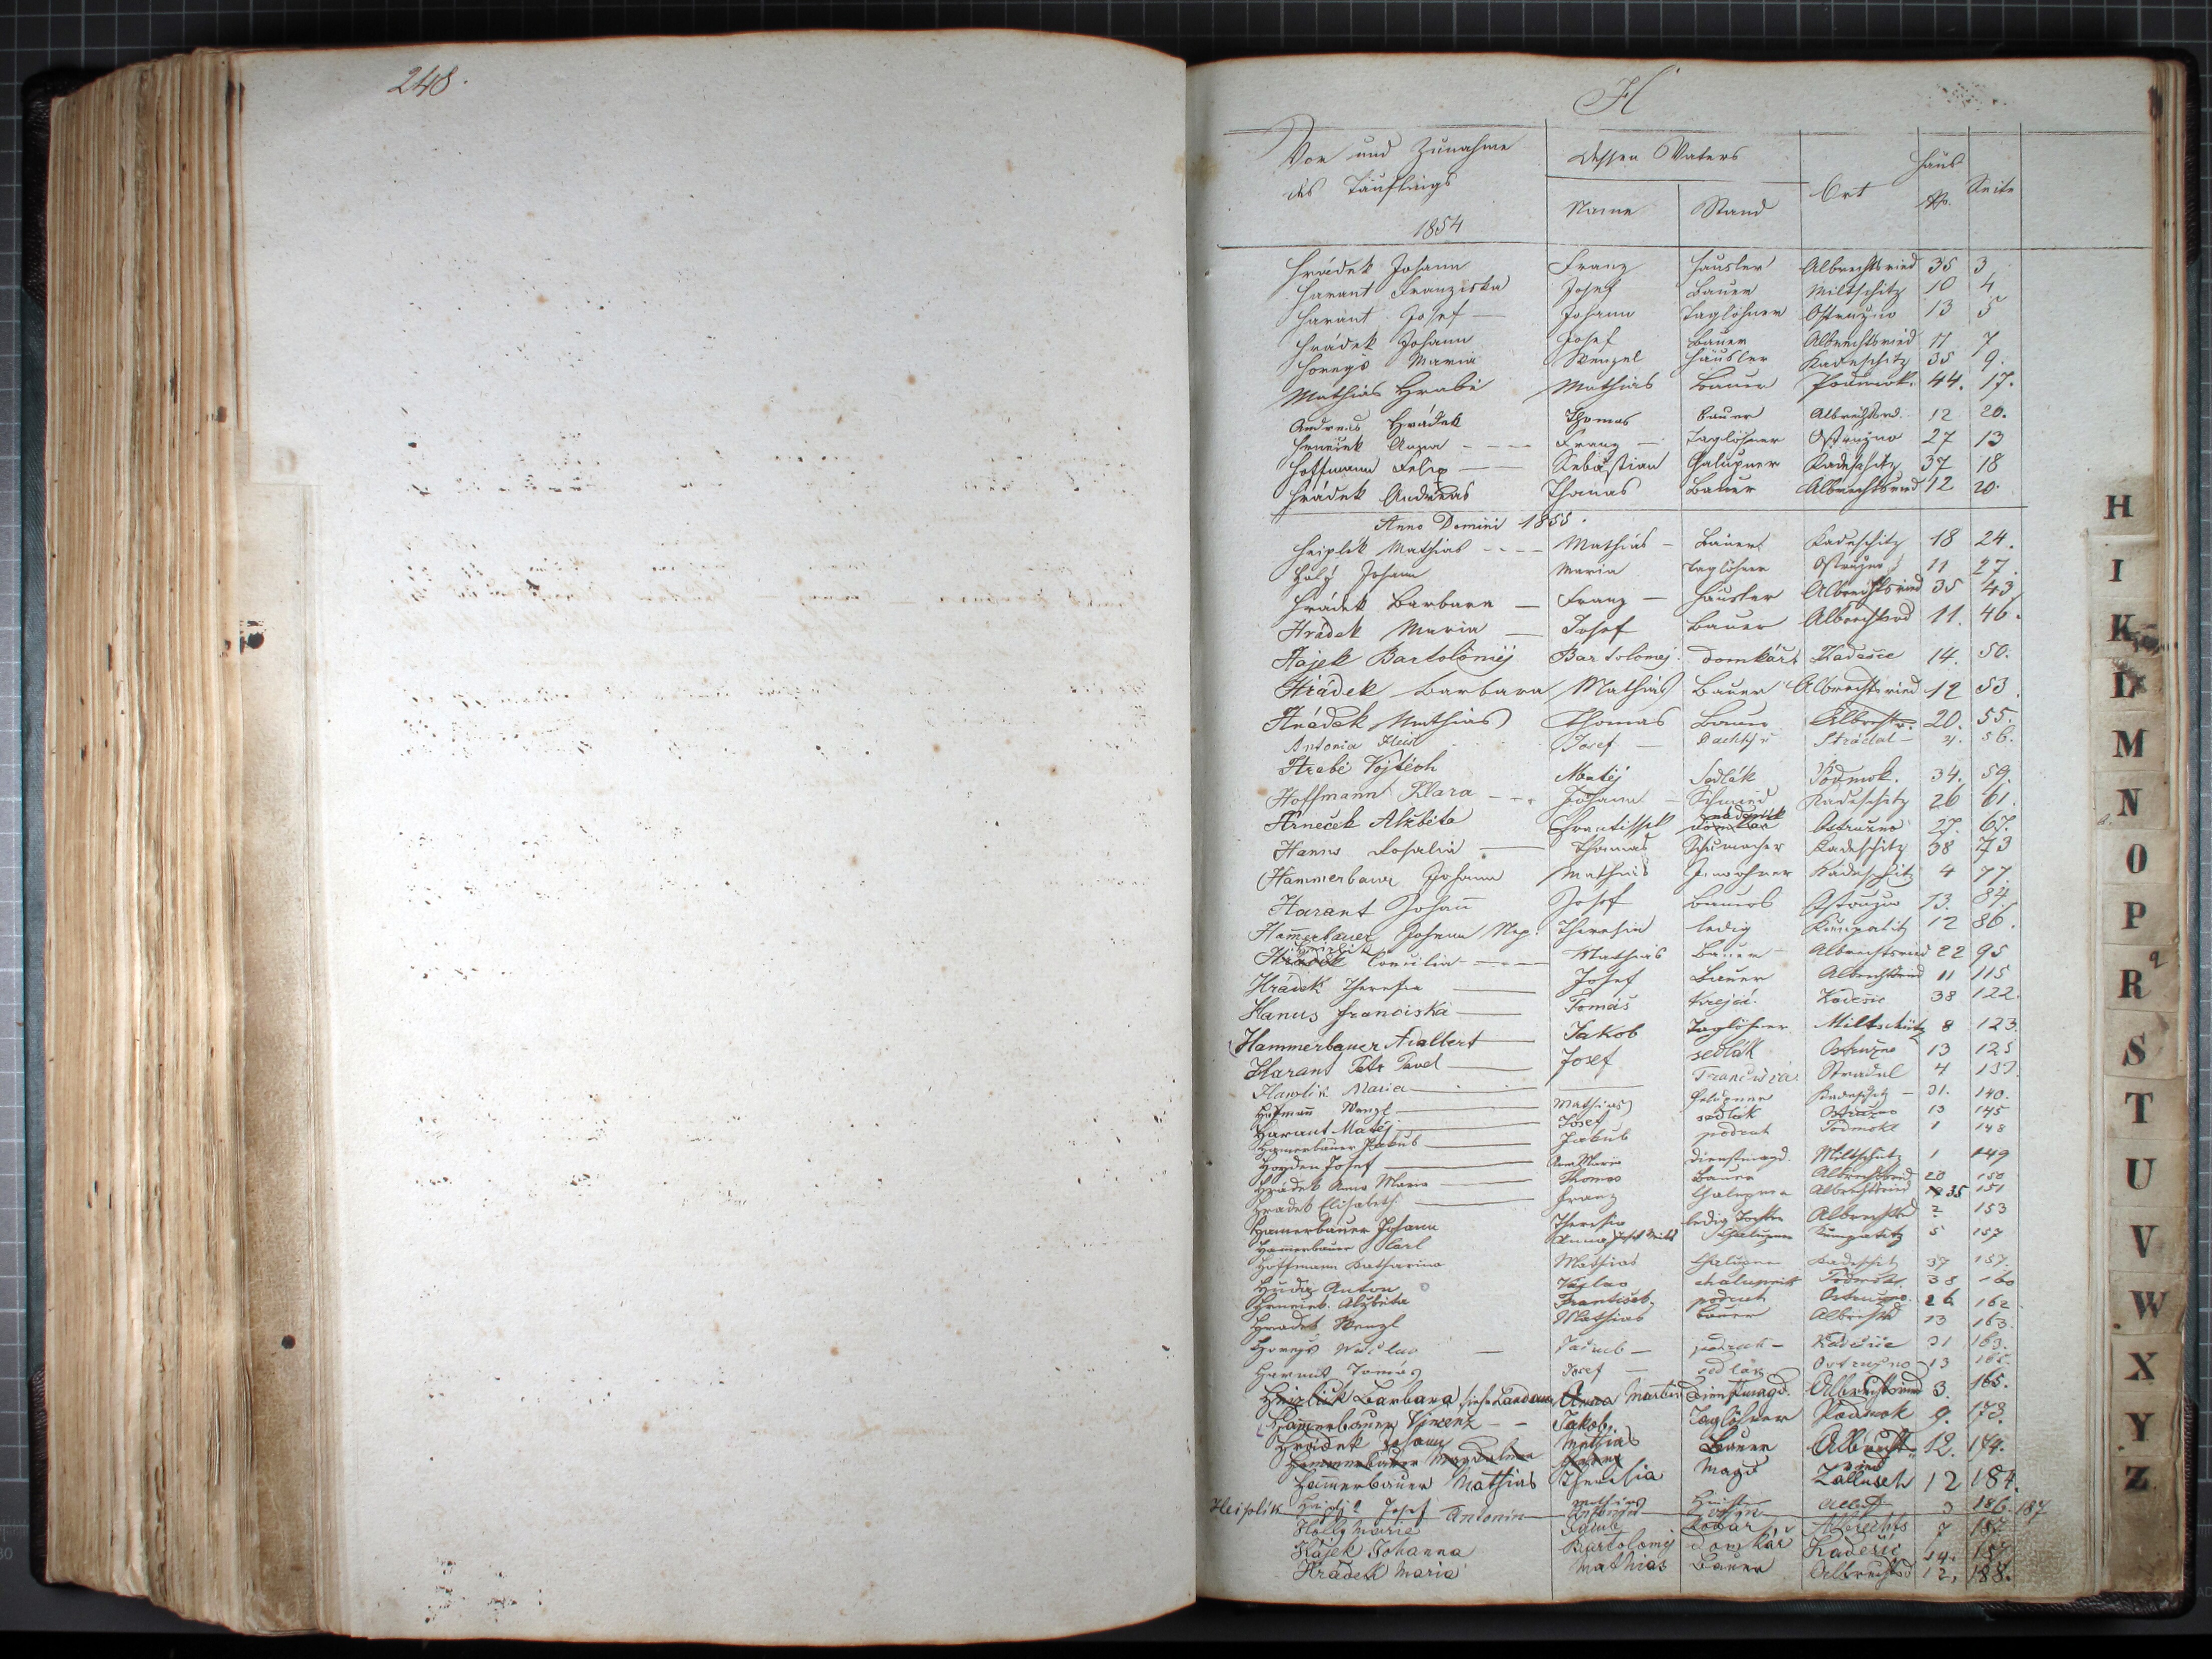 248.
H
Vor und Zunahme
des Täuflings
1854
dessen Vaters
Name
Stand
Ort
Haus
No.
Seite
Hrádek Johann Franz Häusler Albrechtsried 35 3
Harant Franziska Josef Bauer Miltschitz 10 4
Harant Josef — Johann Taglöhner Ostružno 13 5
Hrádek Johann Josef Bauer Albrechtsried 11 7
Horejs Maria Wenzel Häusler Kadeschitz 35 9.
Mathias Hrabě Mathias Bauer Podmok. 44. 17.
Andreas Hrádek Thomas Bauer Albrechtsrd. 12 20.
Hrneček Anna Franz — Taglöhner Ostružno 27 13
Hoffmann Felix — Sebastian Chalupner Kadeschitz 37 18
Hrádek Andreas Thomas Bauer Albrechtsried 12 20.
Anno Domini 1855.
Heiplik Mathias Mathias — Bauer Kadeschitz 18 24.
Holý Johann Maria Taglöhner Ostružno 11 27.
Hrádek Barbara — Franz — Häusler Albrechtsried 35 43
Hrádek Maria — Josef Bauer Albrechtsrd 11. 46.
Hájek Bartoloměj Bartolomej domkář Kadešic 14. 50.
Hrádek Barbara Mathias Bauer Albrechtsried 12 53.
Hrádek Mathias Thomas Bauer Albrechtsr. 20. 55.
Antonia Josef — Stradal — 4. 56.
Hrabě Vojtěch Matěj Sedlák Podmok. 34. 59.
Hoffmann Klara Johann — Schmied Kadeschitz 26 61.
Hrneček Alžběta František Ostružno 27. 67.
Hanus Rosalia — Thomas Schumacher Kadeschitz 38 73
Hammerbauer Johann Mathias Inwohner Kadeschitz 4 77.
Harant Johann Josef Bauers Ostružno 13. 84.
Hammerbauer Johann Nep. Theresia ledig Kumpatitz 12 86.
Hrádek Mathias Bauer — Albrechtsried 22 95
Hradek Theresia — Josef Bauer Albrechtsried 11 115
Hanus Franciska — Tomáš Krejčí. Kadešic 38 122.
Hammerbauer Adalbert — Jakob Taglöhner Miltschitz 8 123.
Harant Petr Pavel — Josef sedlák Ostružno 13 125
Maria — Franciska Stradal 4
Hofmann Wenzl — Mathias Chalupner Kadeschitz — 31. 140.
Harant Matěj — Josef sedlák Ostružno 13 145
Hamerbauer Jakub — Jakub podruh Podmokl 1 148
Josef — Ana Maria Dienstmagd. Miltschitz 1 149
Hrádek Anna Maria — Thomas Bauer Albrechtsried 20 150
Hradek Elisabeth — Franz Chalupner Albrechtsried 35 151
Hamerbauer Johann Theresia ledig Tochter Albrechtsrd 2 153
Hamerbauer Carl Anna Chalupner Kumpatitz 5 157
Hoffmann Katharina Mathias Chalupner Kadeschitz 37 157.
Anton Václav chalupník Podmokl 38 160
Hrneček Alžběta František podruh Ostružno 26 162
Hradek Wenzl Mathias Bauer Albrechtsrd 13 163.
Horejs Václav — Jakub — podruh — Kadešice 31 163.
Harant Tomáš Josef — sedlák Ostružno 13 165.
Heiplik Barbara Anna Dienstmagd. Albrechtsried 3. 165.
Hammerbauer Vincenz — Jakob. Taglöhner Podmok 9. 173.
Hrádek Johann Mathias Bauer Albrechtsried 12. 174.
Hammerbauer Magdalena
Hammerbauer Mathias Theresia Magd Zallusch 12 184.
Heiplik Josef Antonin 3 186. 187
Holly Marie Jakub Kovář Albrechts 7 187.
Hájek Johanna Bartoloměj domkář Kadešic 14. 187.
Hrádek Maria Mathias Bauer Albrechtsd 12, 188.
H
I
K
L
M
N
O
P
R
S
T
U
V
W
X
Y
Z